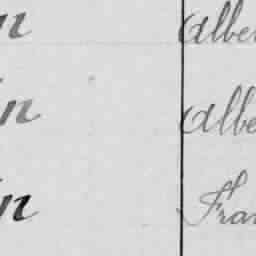 n Albe
in Albe
in Fra